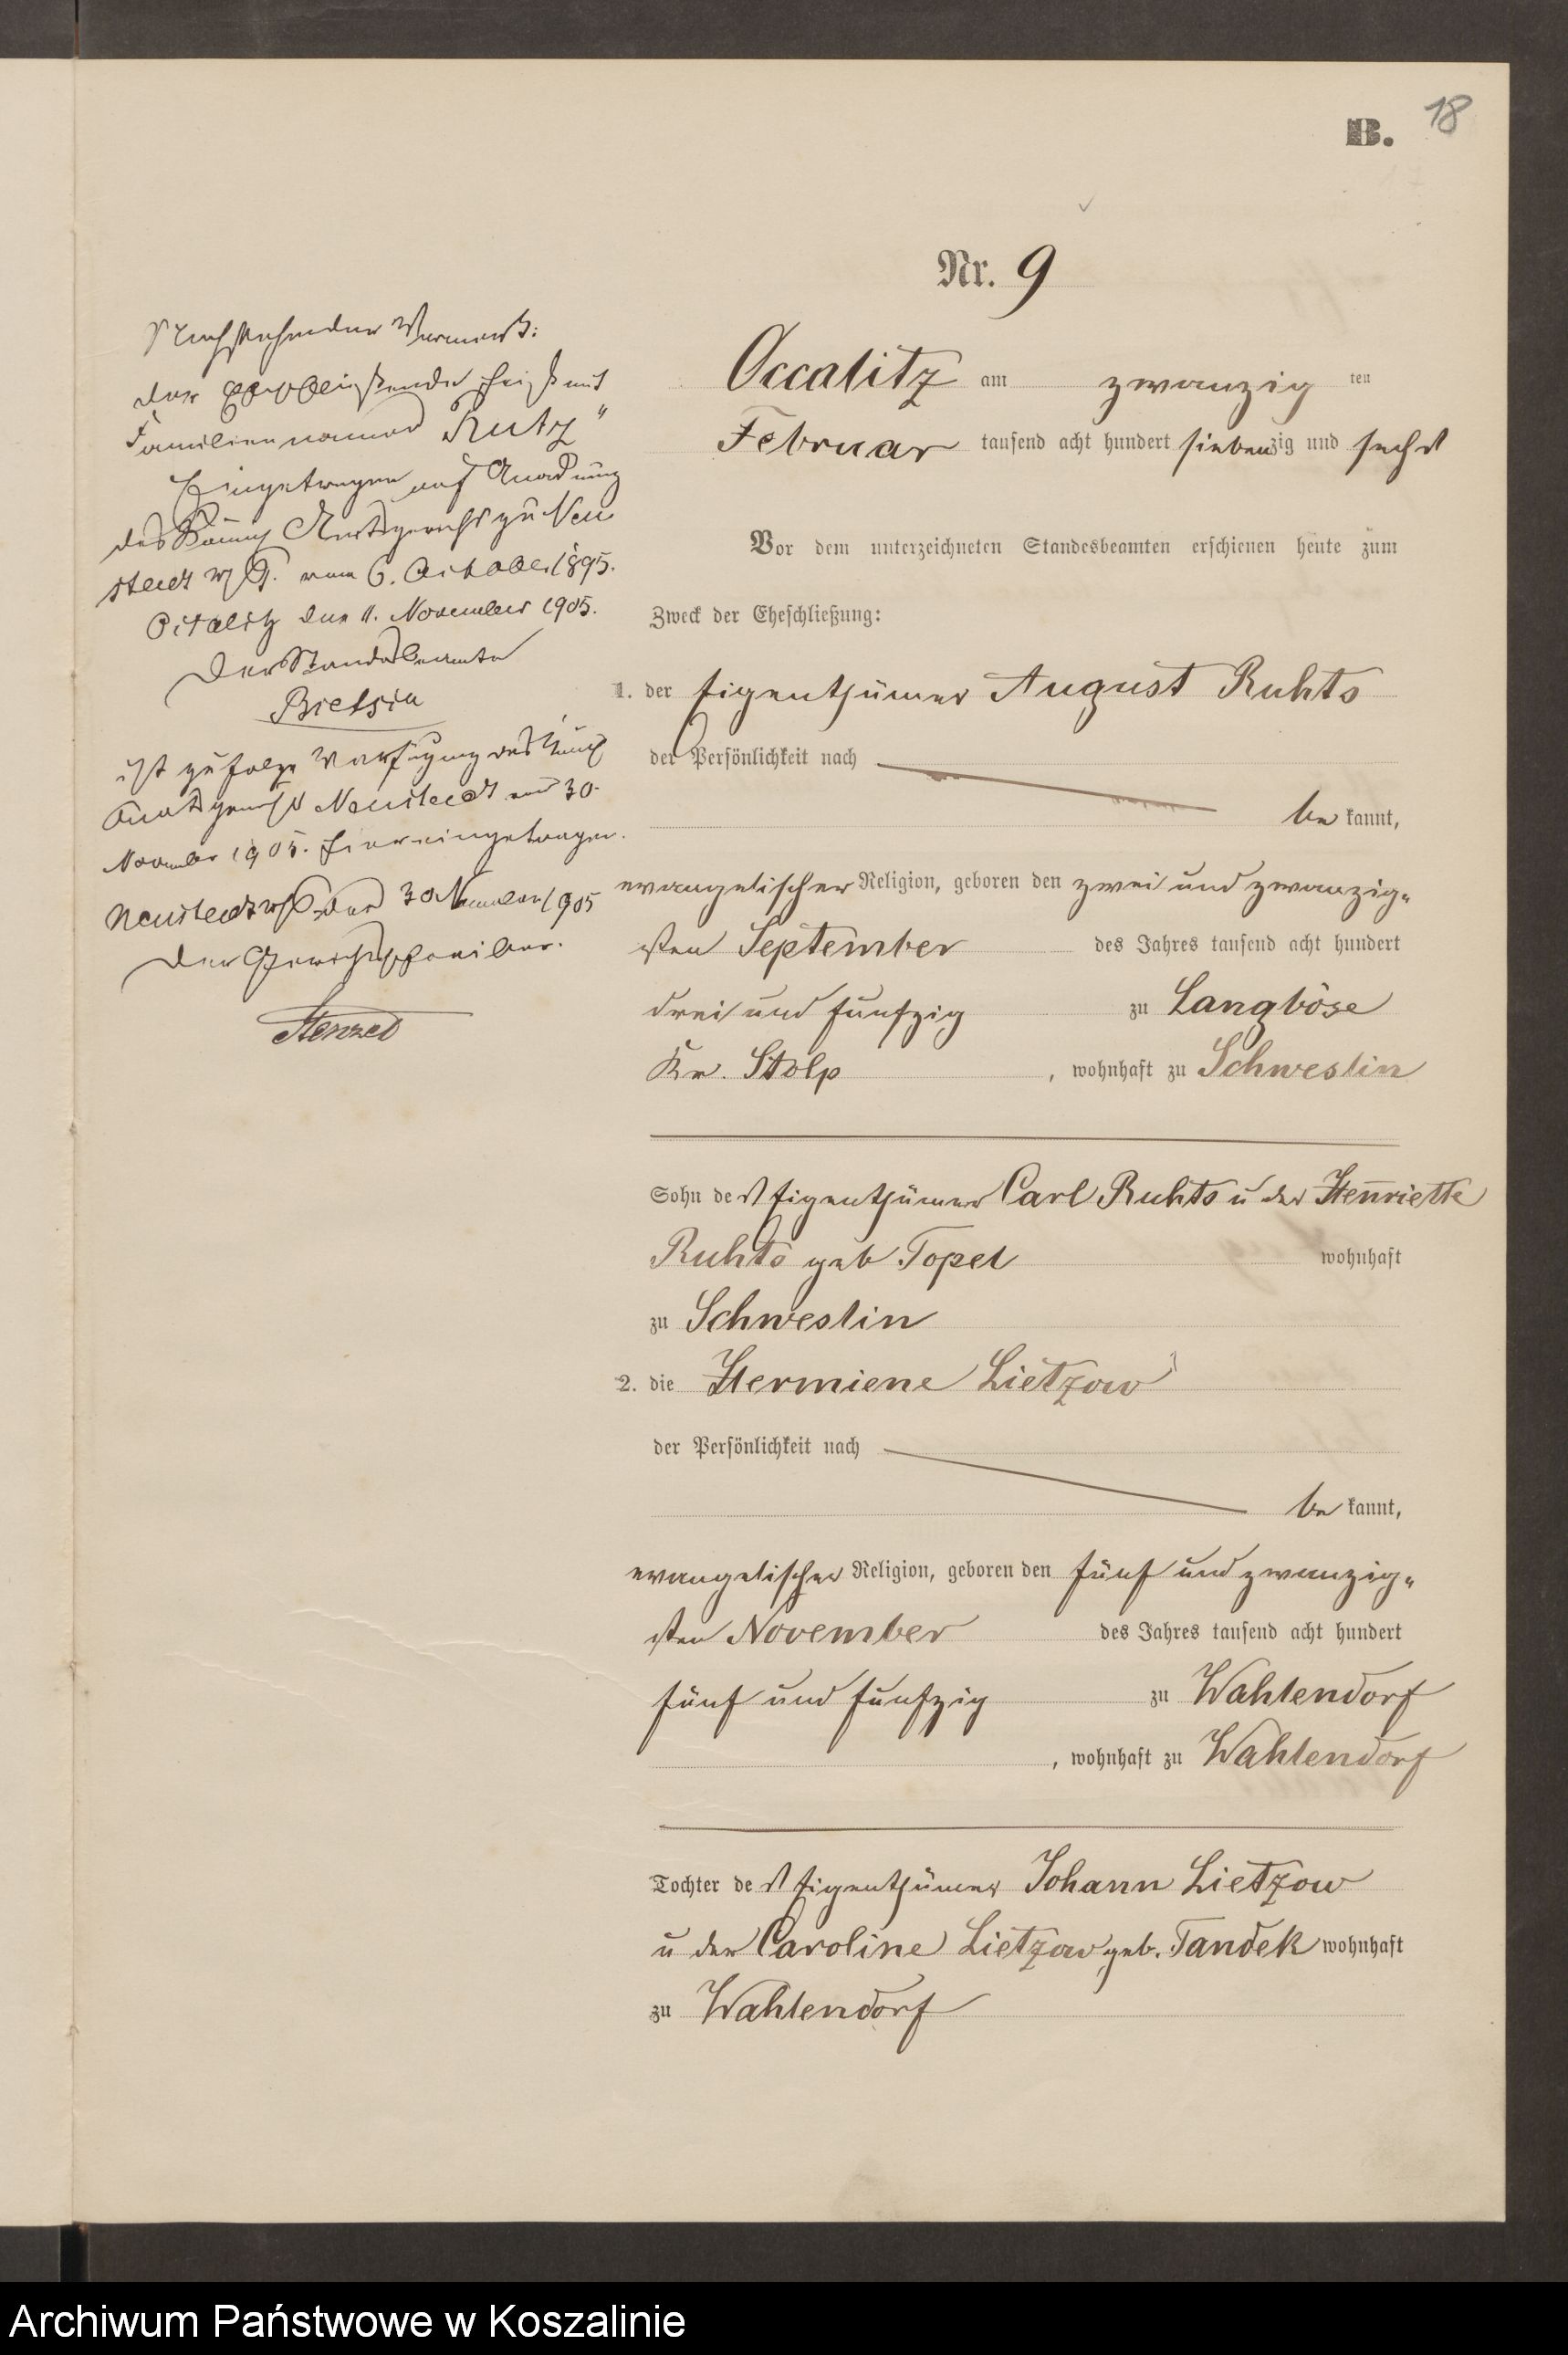 B. 18
Nr. 9
Occalitz am zwanzig ten
Februar tausend acht hundert siebenzig und sechs
Vor dem unterzeichneten Standesbeamten erschienen heute zum
Zweck der Eheschließung:
1. der Eigenthümer August Ruhts
der Persönlichkeit nach
be kannt,
evangelischer Religion, geboren den zwei und zwanzig-
sten September des Jahres tausend acht hundert
drei und funfzig zu Langböse
Kr. Stolp, wohnhaft zu Schweslin
Sohn des Eigenthümer Carl Ruhts u der Henriette
Ruhts geb Topel wohnhaft
zu Schweslin
2. die Hermiene Lietzow
der Persönlichkeit nach
be kannt,
evangelischer Religion, geboren den fünf und zwanzig-
sten November des Jahres tausend acht hundert
fünf und funfzig zu Wahlendorf
, wohnhaft zu Wahlendorf
Tochter des Eigenthümer Johann Lietzow
u der Caroline Lietzow geb. Tandek wohnhaft
zu Wahlendorf
Nachstehender Vermerk:
der Eheschließende heißt mit
Familiennamen "Rutz"
Eingetragen auf Anordnung
des Königl Amtsgerichts zu Neu
stadt W/Pr. vom 6. October 1895.
den 11. November 1905.
Der Standesbeamte
ist zufolge Verfügung des Königl
Amtsgerichts Neustadt vom 30.
November 1905. hier eingetragen.
Neustadt W/Pr. den 30 November 1905
Der Gerichtsschreiber.
Stenzel
Archiwum Państwowe w Koszalinie